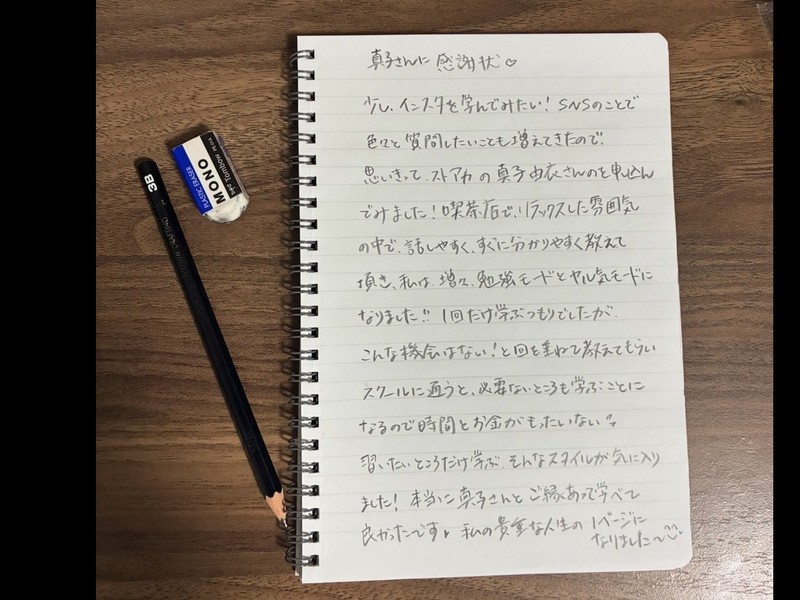 真子さんに 感謝状♡
少し、インスタを学んでみたい！SNSのことで
色々と質問したいことも増えてきたので、
思いきって、ストアカの真子由衣さんのと申込ん
でみました！喫茶店で、リラックスした雰囲気
の中で、話しやすく、すぐに分かりやすく教えて
頂き、私は、増々、勉強モードとヤル気モードに
なりました!! 1回だけ学ぶつもりでしたが、
こんな機会はない！と回を重ねて教えてもらい
スクールに通うと、必要ないところも学ぶことに
なるので時間とお金がもったいない
習いたいところだけ学ぶ、そんなスタイルが気に入り
ました！本当に真子さんとご縁あって学べて
良かったです♥ 私の貴重な人生の1ページに
なりました〜
3B
MONO
PLASTIC ERASER
Tombow